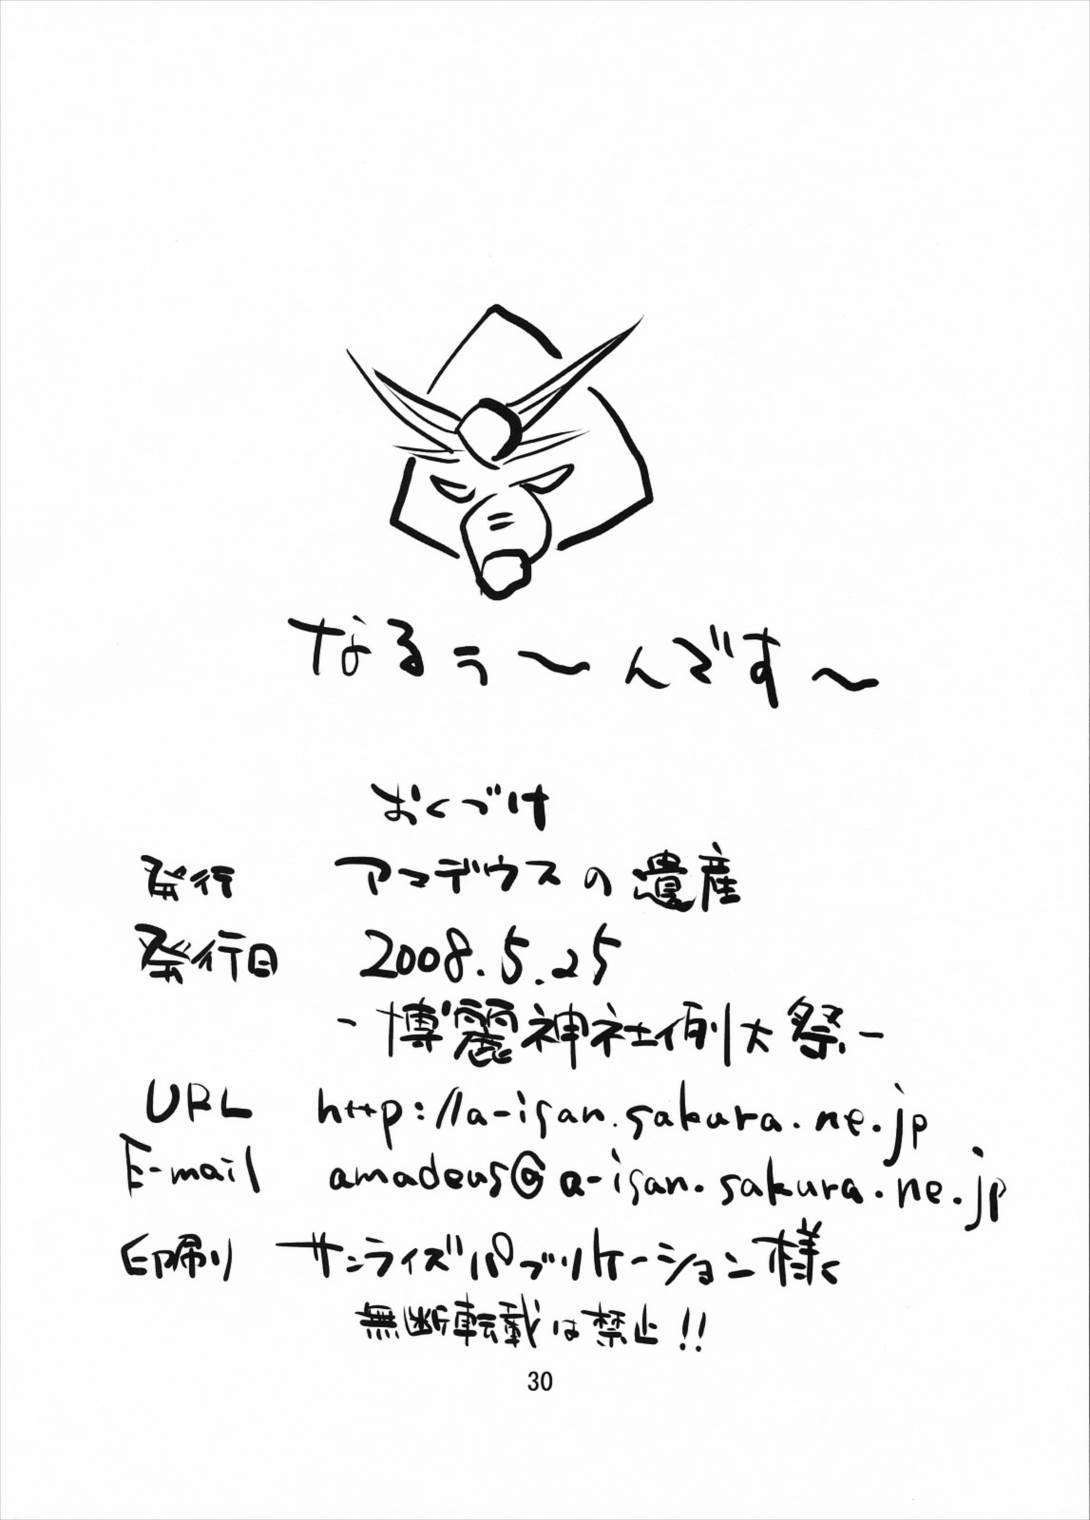 なるぅ～んです～
おくづけ
発行 アマデウスの遺産
発行日 2008.5.25
-博麗神社例大祭-
URL http://a-isan.sakura.ne.jp
E-mail amadeus@a-isan.sakura.ne.jp
印刷 サンライズパブリケーション様
無断転載は禁止!!
30